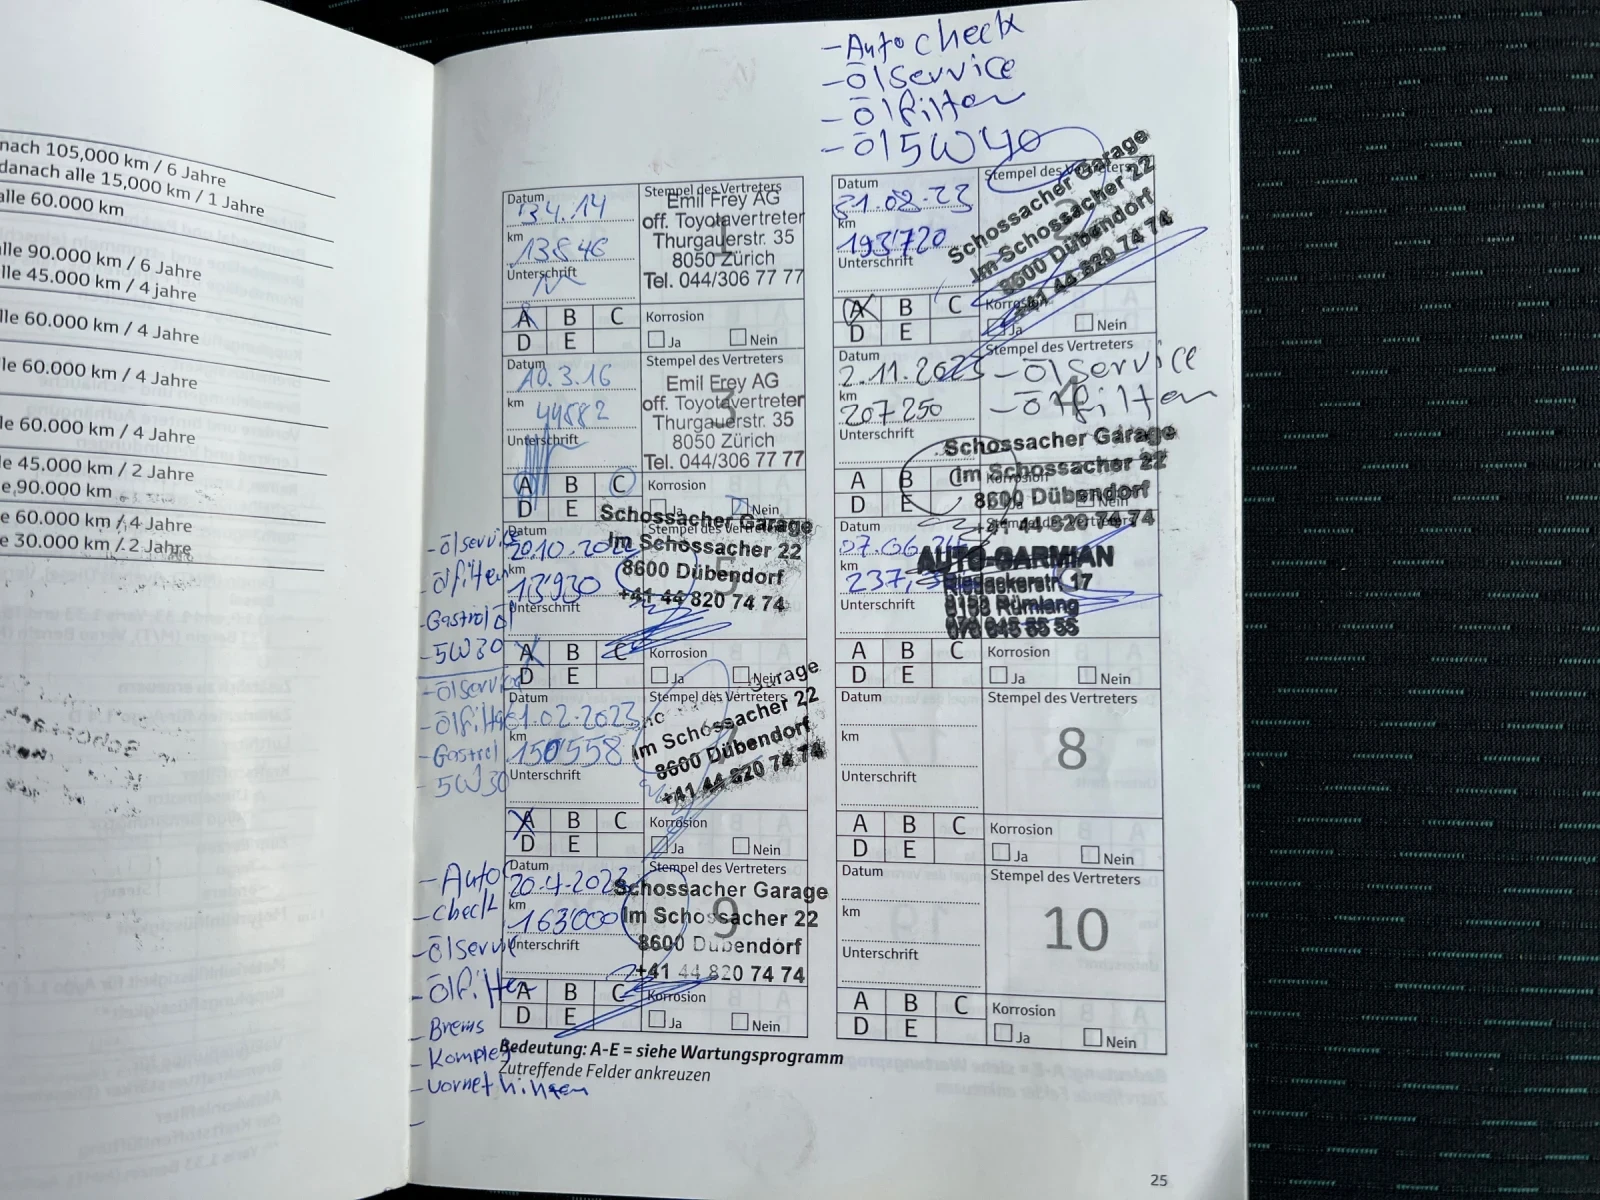 nach 105,000 km / 6 Jahre
danach alle 15,000 km / 1 Jahre
alle 60.000 km
alle 90.000 km / 6 Jahre
lle 45.000 km / 4 jahre
lle 60.000 km / 4 Jahre
le 60.000 km / 4 Jahre
le 60.000 km / 4 Jahre
le 45.000 km / 2 Jahre
e,90.000 km
e 60.000 km / 4 Jahre
e 30.000 km / 2 Jahre
- Auto check
- ölservice
- ölfilter
- öl 5W40
Datum
3.4.14
km
13846
Unterschrift
Stempel des Vertreters
1
Emil Frey AG
off. Toyotavertreter
Thurgauerstr. 35
8050 Zürich
Tel. 044/306 77 77
A B C
D E
Korrosion
Ja Nein
Datum
10.3.16
km
44582
Unterschrift
Stempel des Vertreters
3
Emil Frey AG
off. Toyotavertreter
Thurgauerstr. 35
8050 Zürich
Tel. 044/306 77 77
A B C
D E
Korrosion
Ja Nein
- ölservice
ölfilter
- Gastrol öl
- 5W30
Datum
20.10.2022
km
Unterschrift
Stempel des Vertreters
5
Schossacher Garage
Im Schossacher 22
8600 Dübendorf
+41 44 820 74 74
A B C
D E
Korrosion
Ja Nein
- ölservice
- ölfilter
- Gastrol
- 5W30
Datum
1.02.2023
km
150'558
Unterschrift
Stempel des Vertreters
7
Garage
Im Schossacher 22
8600 Dübendorf
+41 44 820 74 74
A B C
D E
Korrosion
Ja Nein
- Auto
- check
- ölservice
- ölfilter
- Brems
- Komplet
- vornet hinten
Datum
20.4.2023
km
163'000
Unterschrift
Stempel des Vertreters
9
Schossacher Garage
Im Schossacher 22
8600 Dübendorf
+41 44 820 74 74
A B C
D E
Korrosion
Ja Nein
Bedeutung: A-E = siehe Wartungsprogramm
Zutreffende Felder ankreuzen
Datum
21.08.23
km
193'720
Unterschrift
Stempel des Vertreters
2
Schossacher Garage
Im Schossacher 22
8600 Dübendorf
+41 44 820 74 74
A B C
D E
Korrosion
Ja Nein
Datum
2.11.2023
km
207250
Unterschrift
Stempel des Vertreters
4
- ölservice
- ölfilter
Schossacher Garage
Im Schossacher 22
8600 Dübendorf
+41 44 820 74 74
A B C
D E
Korrosion
Nein
Datum
07.06
km
237,
Unterschrift
Stempel des Vertreters
AUTO-GARMIAN
Riedackerstr. 17
8153 Rümlang
076 645 65 55
A B C
D E
Korrosion
Ja Nein
Datum
km
Unterschrift
Stempel des Vertreters
8
A B C
D E
Korrosion
Ja Nein
Datum
km
Unterschrift
Stempel des Vertreters
10
A B C
D E
Korrosion
Ja Nein
25